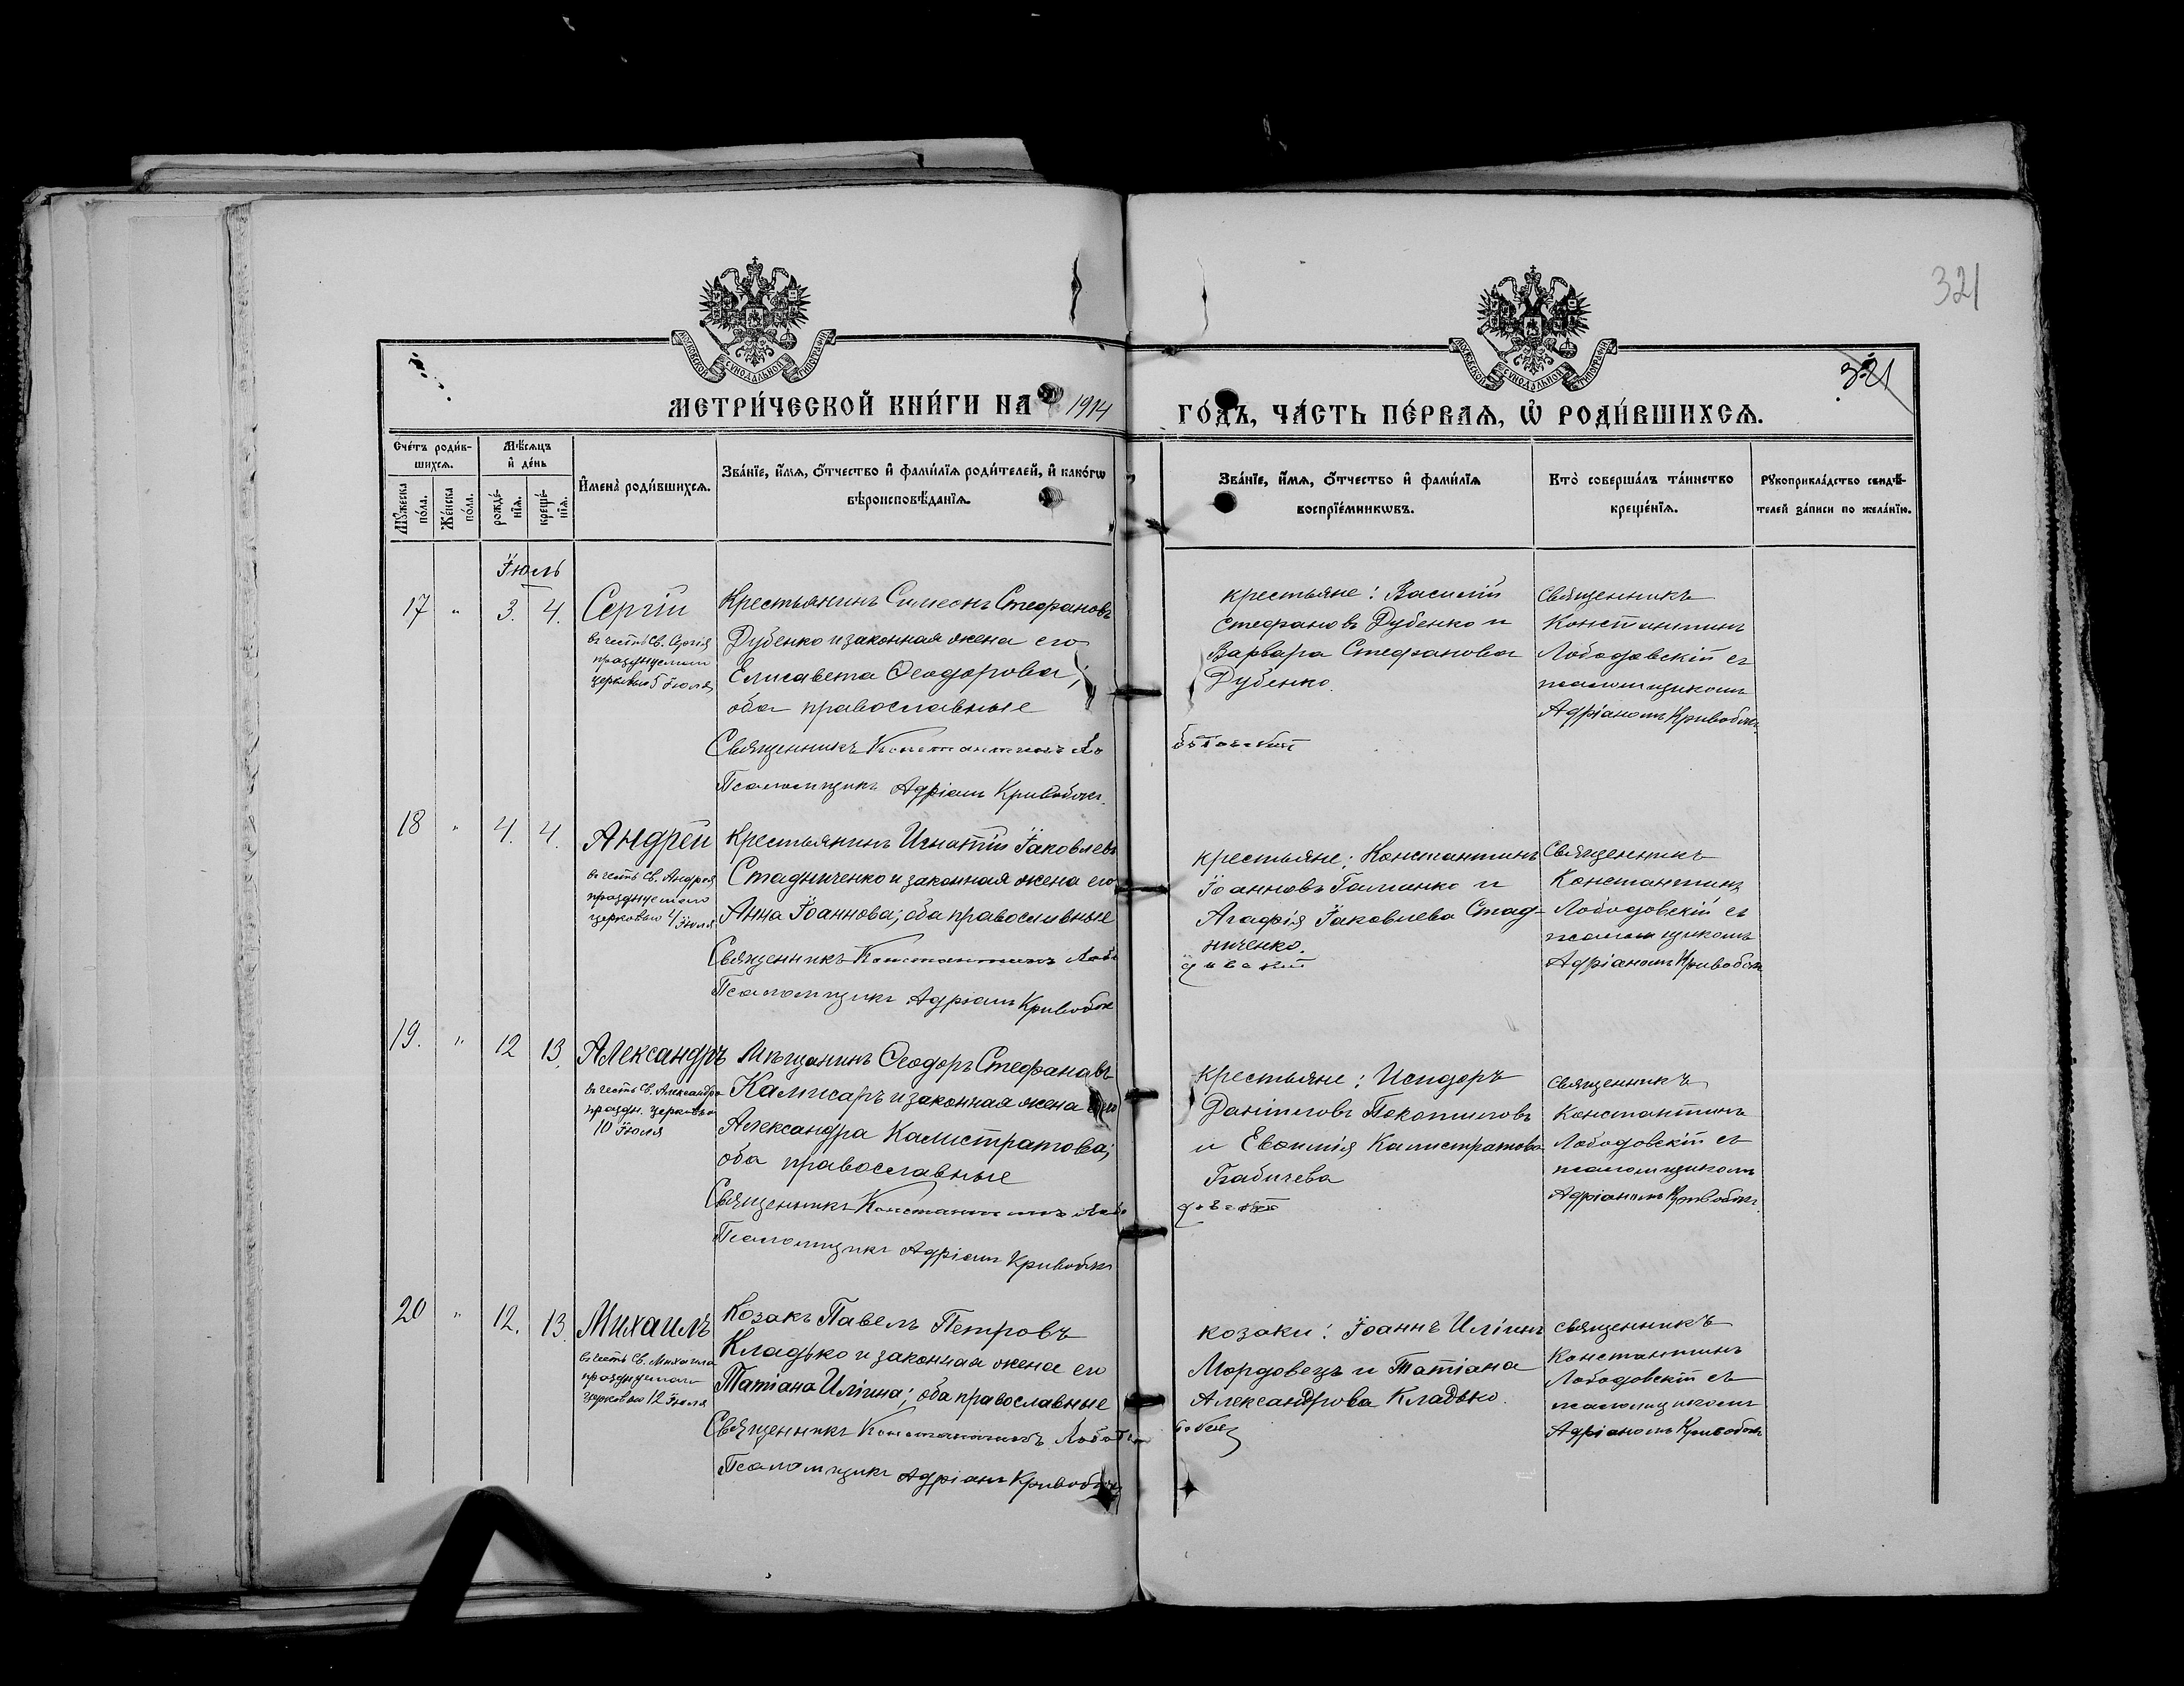 321
321
МОСКОВСКОЙ СѴНОДАЛЬНОЙ ТИПОГРАФІИ
МОСКОВСКОЙ СѴНОДАЛЬНОЙ ТИПОГРАФІИ
МЕТРИ́ЧЕСКОЙ КНИ́ГИ НА 1914 ГО́ДЪ, ЧА́СТЬ ПЕ́РВАѦ, Ѡ҆ РОДИ́ВШИХСѦ.
Сче́тъ роди́в-
шихсѧ.
Мꙋ́жеска по́ла.
Же́нска по́ла.
Мѣ́сѧцъ
и҆ де́нь
рожде́-
нїѧ.
креще́-
нїѧ.
И҆мена̀ роди́вшихсѧ.
Зва́нїе, и҆́мѧ, ѻ҆́тчество и҆ фами́лїѧ роди́телей, и҆ како́гѡ
вѣроисповѣ́данїѧ.
Зва́нїе, и҆́мѧ, ѻ҆́тчество и҆ фами́лїѧ
воспрїе́мникѡвъ.
Кто̀ соверша́лъ та́инство
креще́нїѧ.
Рꙋкоприкла́дство свидѣ́-
телей за́писи по жела́нїю.
Іюль
17 " 3. 4. Сергій
въ честь Св. Сергія
празднуемаго
церковью 5 Іюля
Крестьянинъ Симеонъ Стефановъ
Дубенко и законная жена его
Елисавета Ѳеодорова;
оба православные
Священникъ Константинъ Лобо
Псаломщикъ Адріанъ Кривобокъ.
крестьяне: Василій
Стефановъ Дубенко и
Варвара Стефанова
Дубенко.
Священникъ
Константинъ
Лободовскій съ
псаломщикомъ
Адріаномъ Кривобокъ
18 " 4. 4. Андрей
въ честь Св. Андрея
празднуемаго
церковью 4 Іюля
Крестьянинъ Игнатій Іаковлевъ
Стадниченко и законная жена его
Анна Іоаннова; оба православные
Священникъ Константинъ Лобо
Псаломщикъ Адріанъ Кривобок
крестьяне: Константинъ
Іоанновъ Галинко и
Агафія Іаковлева Стад-
ниченко.
довскій
Священникъ
Константинъ
Лободовскій съ
псаломщикомъ
Адріаномъ Кривобок
19. " 12 13. Александръ
въ честь Св. Александра
праздн. церковью
10 Іюля
Мѣщанинъ Ѳеодоръ Стефановъ
Камисаръ и законная жена его
Александра Калистратова;
оба православные
Священникъ Константинъ Лобо
Псаломщикъ Адріанъ Кривобокъ
крестьяне: Исидоръ
Даніиловъ Покотиловъ
и Евѳимія Калистратова
Бабичева
довскій
Священникъ
Константинъ
Лободовскій съ
псаломщикомъ
Адріаномъ Кривобокъ.
20 " 12. 13. Михаилъ
въ честь Св. Михаила
празднуемаго
церковью 12 Іюля
Козакъ Павелъ Петровъ
Кладько и законная жена его
Татіана Иліина; оба православные
Священникъ Константинъ Лободо
Псаломщикъ Адріанъ Кривобокъ
козаки: Іоаннъ Иліинъ
Мордовецъ и Татіана
Александрова Кладько.
Священникъ
Константинъ
Лободовскій съ
псаломщикомъ
Адріаномъ Кривобокъ